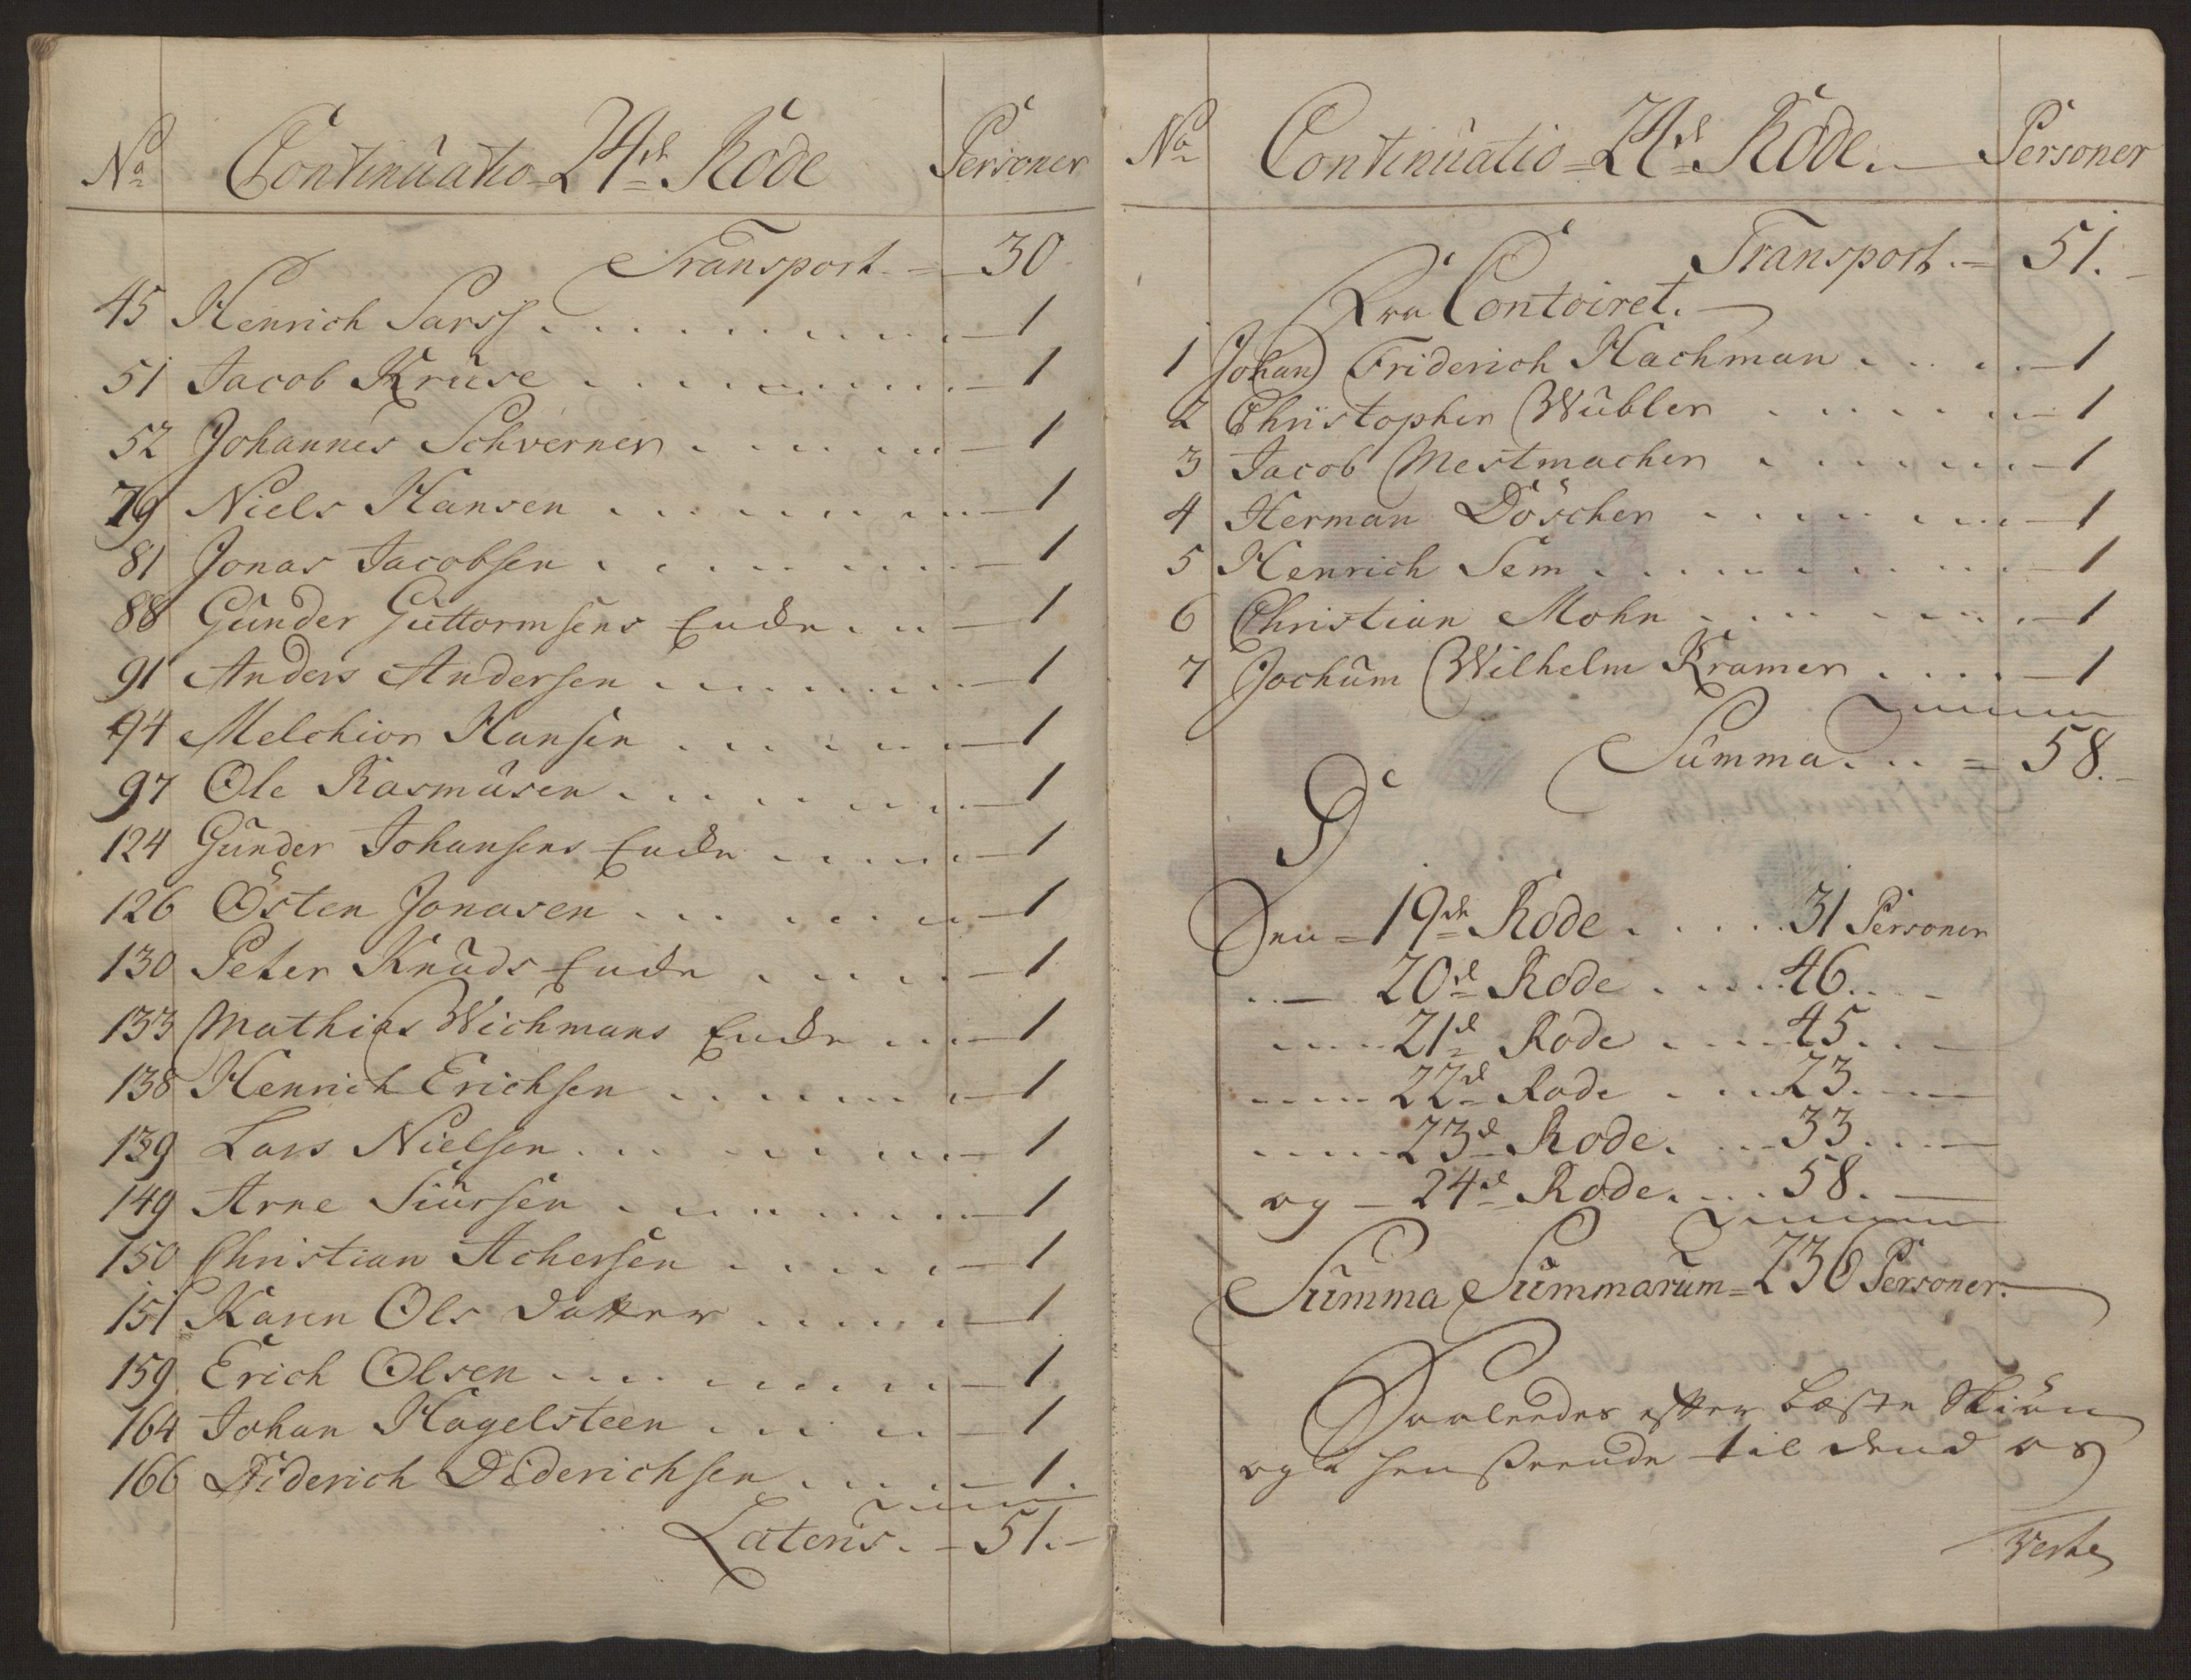 No Continuatio 24de Rode Personer
Transport 30
45 Henrich Sarss 1
51 Jacob Kruse 1
52 Johannes Schverner 1
79 Niels Hansen 1
81 Jonas Jacobsen 1
88 Gunder Guttormsens Encke 1
91 Anders Andersen 1
94 Melchior Hansen 1
97 Ole Rasmusen 1
124 Gunder Johansens Encke 1
126 Østen Jonasen 1
130 Peter Knuds Encke 1
133 Mathias Wichmans Encke 1
138 Henrich Erichsen 1
139 Lars Nielsen 1
149 Arne Siursen 1
150 Christian Achersen 1
151 Karen Ols Datter 1
159 Erich Olsen 1
164 Johan Hagelsteen 1
166 Diderich Diderichsen 1.
Lateris. 51.
No Continuatio 24de Rode. Personer
Transport. 51.
Contoiret.
1 Johan Friderich Hachman 1
2 Christopher Wübler 1
3 Jacob Mestmacher 1
4 Herman Döscher 1
5 Henrich Sem 1
6 Christian Mohn 1
7 Jochum Wilhelm Kramer 1
Summa 58.
19de Rode 31 Personer
20d Rode 46.
21d Rode 45.
22d Rode 23.
23d Rode. 33.
og 24d Rode. 58.
Summa Summarum 236 Personer.
Saaleedes efter beste Skiøn
og i henseende til dend os
Verte